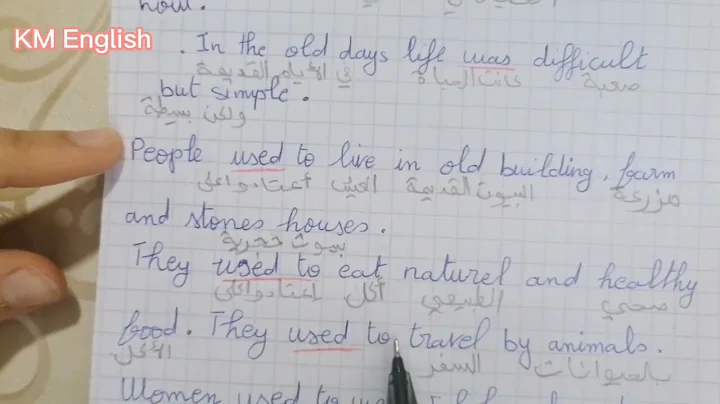 now.
KM English
. In the old days life was difficult
في الأيام القديمة كانت الحياة صعبة
but simple.
ولكن بسيطة
People used to live in old building, farm
اعتادوا على العيش البيوت القديمة مزرعة
and stones houses.
بيوت حجرية
They used to eat naturel and healthy
اعتادوا على أكل الطبيعي صحي
food. They used to travel by animals.
الأكل السفر بالحيوانات
Women used to